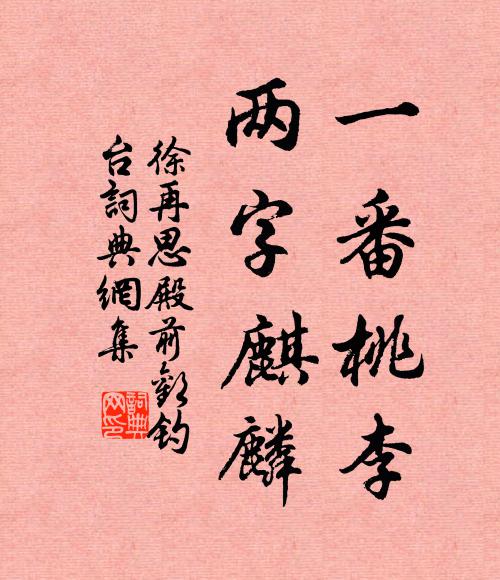 一番桃李
两字麒麟
徐再思殿前歡釣
台詞典網集
詞典
网印